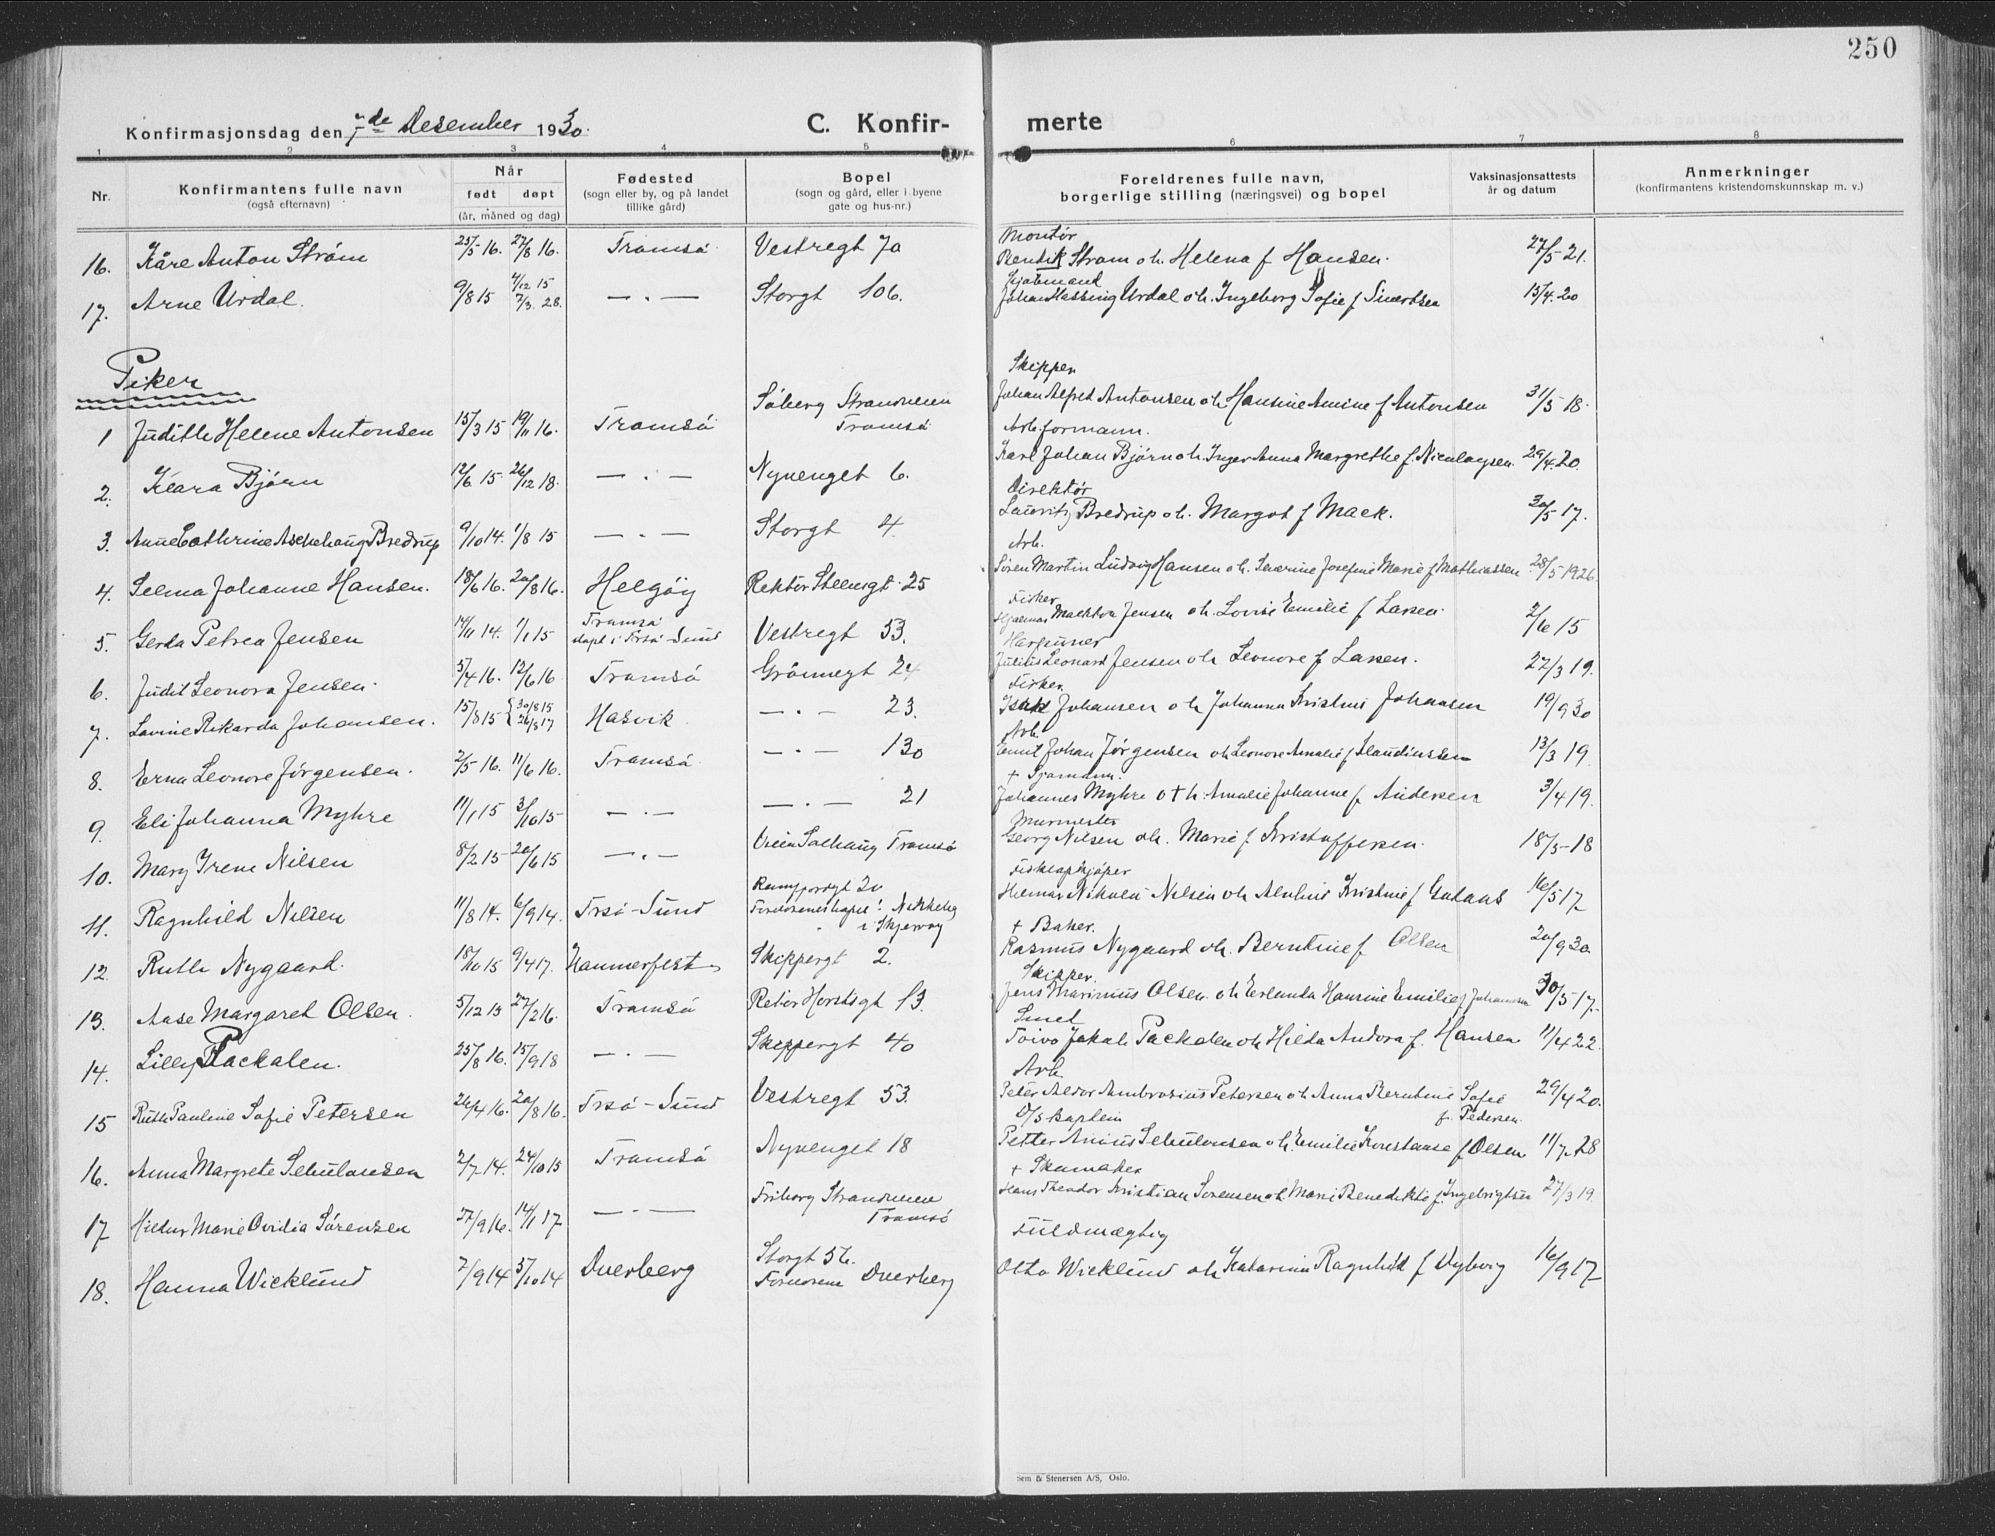 250
Konfirmasjonsdag den 7de Desember 1930.
C. Konfir-
merte
1 2 3 4 5 6 7 8
Nr. Konfirmantens fulle navn (også efternavn) Når født døpt (år, måned og dag) Fødested (sogn eller by, og på landet tillike gård) Bopel (sogn og gård, eller i byene gate og hus-nr.) Foreldrenes fulle navn, borgerlige stilling (næringsvei) og bopel Vaksinasjonsattests år og datum Anmerkninger (konfirmantens kristendomskunnskap m. v.)
Montør
16. Kåre Anton Strøm 25/5 16. 27/8 16. Tromsø Vestregt 70 Bendik Strøm o h. Helena f Hansen. 27/5-21.
17. Arne Urdal. 9/8 15 4/12 15 7/3. 28. — " — Storgt 106. Johan Urdal o h. Ingeborg Sofie f Sivertsen 15/4.20
Piker
Skipper
1 Judith Helene Antonsen 15/3 15 19/11 16. Tromsø Søberg Strandveien Tromsø Johan Alfred Antonsen o h Hansine Amine f Antonsen 31/5 18.
Arb.formann.
2. Klara Bjørn 12/6 15 26/12 18. — " — Nyvenget 6. Karl Johan Bjørn o h. Inger Anna Margrethe f. Nicolaysen 29/4.20.
Direktør
3. Anne Cathrine Aschehoug Bredrup 9/10 14. 1/8 15 — " — Storgt 4. Lauritz Bredrup o h. Margot f Mack. 30/5 17.
Arb.
4. Selma Johanne Hansen. 18/6 16. 20/8 16. Helgøy Rektor Steensgt. 25 Søren Martin Ludvig Hansen o h. Severine Josefine Marie f Mathiassen 28/5 1926.
Fisker
5. Gerda Petrea Jensen 14/11 14. 1/1 15 Tromsø døpt i Trsø-Sund Vestregt 53. Hjalmar Jensen o h. Lovise Emilie f Larsen. 2/6 15
Harpuner
6. Judit Leonora Jensen. 5/4 16. 12/6 16 Tromsø Grønnegt 24 Julius Leonard Jensen o h Leonore f Larsen. 27/3 19.
Fisker
7. Lovine Rikarda Johansen. 15/8 15 30/8 15 26/8 17 Hasvik — " — 23. Isak Johansen o h Johanna Kristine Johansen 19/9 30
Arb.
8. Erna Leonore Jørgensen. 2/5 16. 11/6 16. Tromsø — " — 130 Emil Johan Jørgensen o h Leonore Amalie f Klaudiussen 13/3 19.
+ Sjømann.
9. Eli Johanna Myhre 11/1 15 3/10 15 — " — — " — 21 Johannes Myhre o + h. Amalie Johanne f. Andersen 3/4 19.
Murmester
10. Mary Irene Nilsen 8/2 15 20/6 15 — " — Solhaug Tromsø Georg Nilsen o h. Marie f Kristoffersen. 18/5-18
Fiskeopkjøper
11. Ragnhild Nilsen 11/8 14. 6/9 14. Trsø-Sund Ramfjordgt 20 Foreldrenes bopel: i Skjervøy Nikolai Nilsen o h Kristine f 16/5 17
+ Baker.
12. Ruth Nygaard. 18/10 15 9/4 17. Hammerfest Skippergt 2. Rasmus Nygaard o h. Berntine f Olsen 20/9 30.
Skipper.
13. Aase Margaret Olsen. 5/12 13 27/2 16. Tromsø Horstsgt 13. Jens Marinius Olsen o h Erlanda Hansine Emilie f Johansen 30/5 17.
Smed
14. Lilly Packalen. 25/8 16. 15/9 18 — " — Skippergt 40 Toivo Jakob Packalen o h Hilda Andora f. Hansen 11/4 22.
Arb.
15 Ruth Pauline Sofie Petersen 26/4 16. 20/8 16. Trsø-Sund Vestregt 53. Peter Aldor Ambrosius Petersen o h Anna Berntine Sofie f. Pedersen. 29/4 20.
D/S kaptein
16. Anna Margrete Schulousen 2/7 14. 24/10 15 Tromsø Nyvenget 18 Petter Schulousen o h. Emilie f Olsen 11/7.28
+ Skomaker
17 Hildur Marie Ovidia Sørensen 27/9 16. 14/1 17 — " — Friborg Strandveien Tromsø Hans Theodor Kristian Sørensen o h. Marie Benedikte f. Ingebrigtsen 27/3 19.
Fuldmægtig
18. Hanna Wicklund 7/9 14 5/10 14 Dverberg Storgt 56. Dverberg Otto Wicklund o h Katarina Ragnhild f Dyborg 16/9 17
Sem & Stenersen A/S, Oslo.